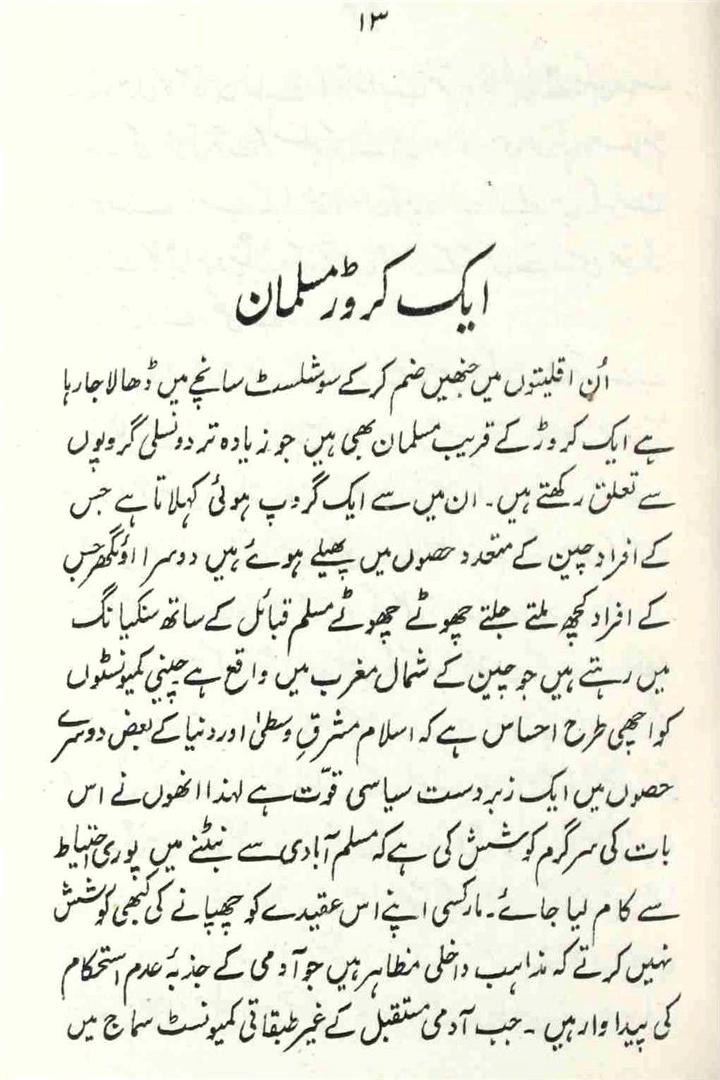 ۱۳
ایک کروڑ مسلمان
اُن اقلیتوں میں جنھیں ضم کر کے سوشلسٹ سانچے میں ڈھالا جا رہا
ہے ایک کروڑ کے قریب مسلمان بھی ہیں جو زیادہ تر دو نسلی گروپوں
سے تعلق رکھتے ہیں۔ ان میں سے ایک گروپ ہوئی کہلاتا ہے جس
کے افراد چین کے متعدد حصوں میں پھیلے ہوئے ہیں دوسرا اوئگھر جس
کے افراد کچھ ملتے جلتے چھوٹے چھوٹے مسلم قبائل کے ساتھ سنکیانگ
میں رہتے ہیں جو چین کے شمال مغرب میں واقع ہے۔ چینی کمیونسٹوں
کو اچھی طرح احساس ہے کہ اسلام مشرقِ وسطیٰ اور دنیا کے بعض دوسرے
حصوں میں ایک زبردست سیاسی قوّت ہے لہذا انھوں نے اس
بات کی سرگرم کوشش کی ہے کہ مسلم آبادی سے نبٹنے میں پوری احتیاط
سے کام لیا جائے۔ مارکسی اپنے اس عقیدے کو چھپانے کی کبھی کوشش
نہیں کرتے کہ مذاہب داخلی مظاہر ہیں جو آدمی کے جذبۂ عدم استحکام
کی پیداوار ہیں ۔ جب آدمی مستقبل کے غیر طبقاتی کمیونسٹ سماج میں